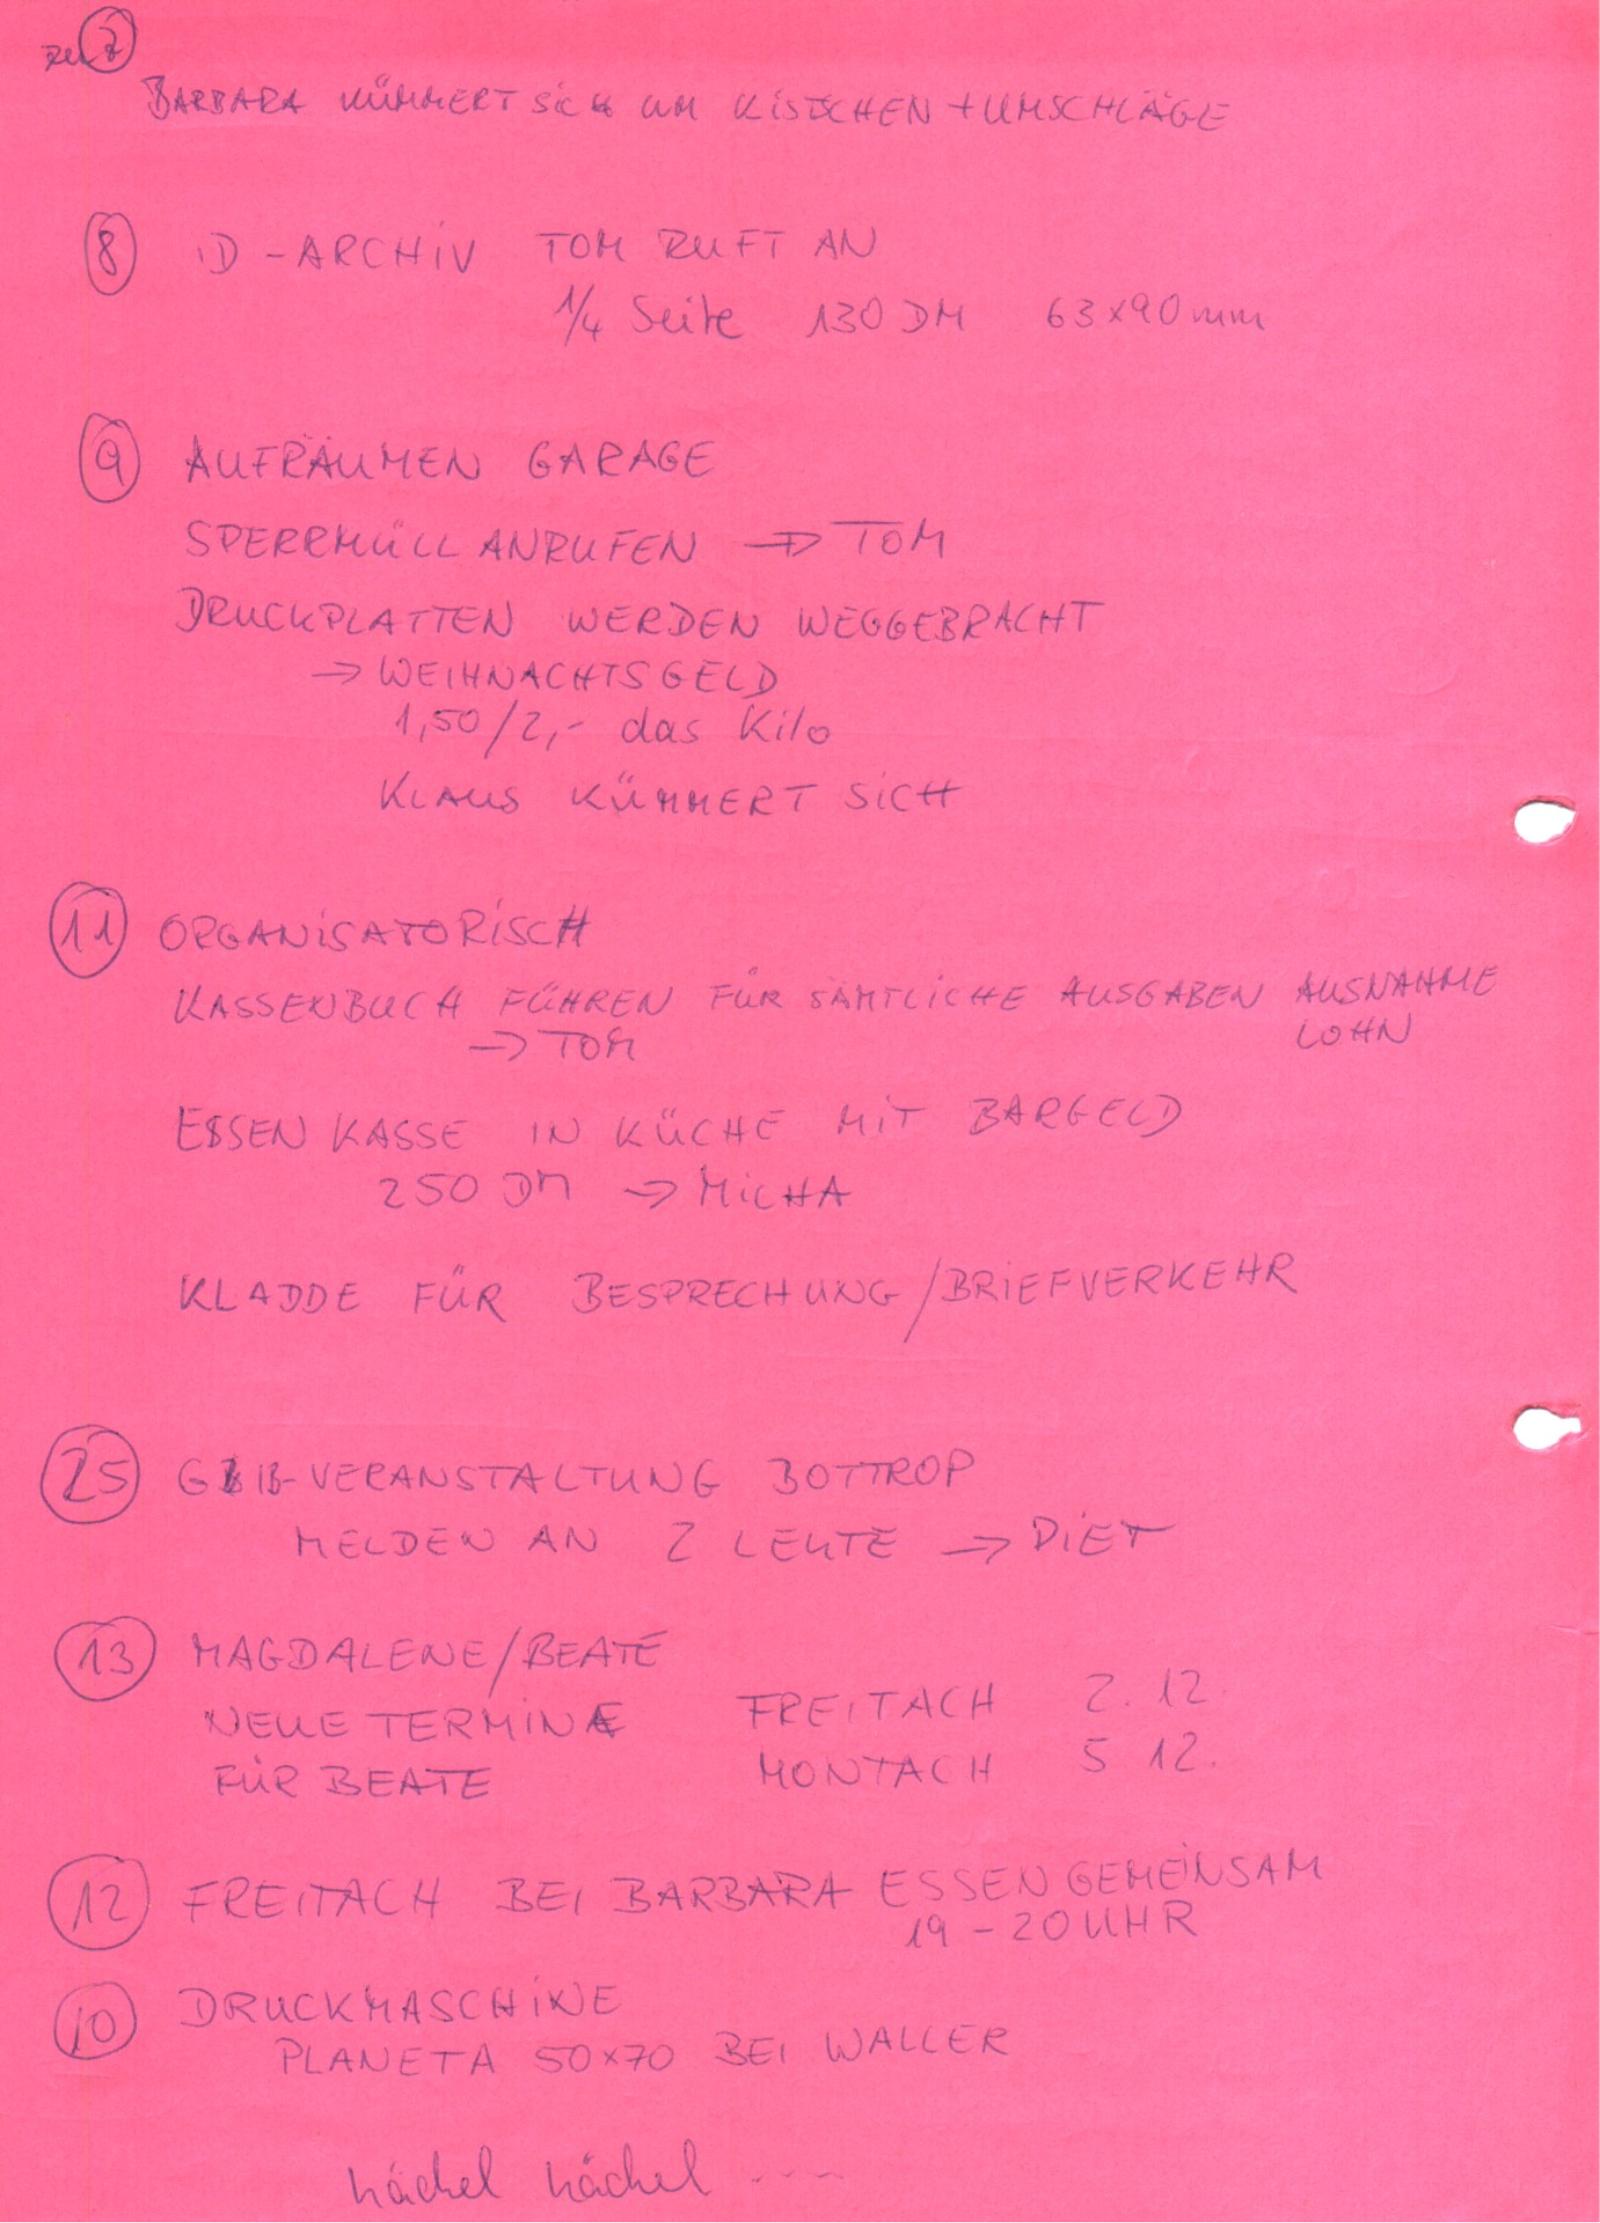 zu 7
BARBARA KÜMMERT SICH UM KISTCHEN + UMSCHLÄGE
8 ID-ARCHIV TOM RUFT AN
1/4 Seite 130 DM 63x90 mm
9 AUFRÄUMEN GARAGE
SPERRMÜLL ANRUFEN → TOM
DRUCKPLATTEN WERDEN WEGGEBRACHT
→ WEIHNACHTSGELD
1,50/2,- das Kilo
KLAUS KÜMMERT SICH
11 ORGANISATORISCH
KASSENBUCH FÜHREN FÜR SÄMTLICHE AUSGABEN AUSNAHME
→ TOM LOHN
ESSEN KASSE IN KÜCHE MIT BARGELD
250 DM → MICHA
KLADDE FÜR BESPRECHUNG/BRIEFVERKEHR
25 VERANSTALTUNG BOTTROP
MELDEN AN 2 LEUTE → DIET
13 MAGDALENE/BEATE
NEUE TERMINE FREITACH 2.12.
FÜR BEATE MONTACH 5 12.
12 FREITACH BEI BARBARA ESSEN GEMEINSAM
19 - 20 UHR
10 DRUCKMASCHINE
PLANETA 50x70 BEI WALLER
hächel hächel ----